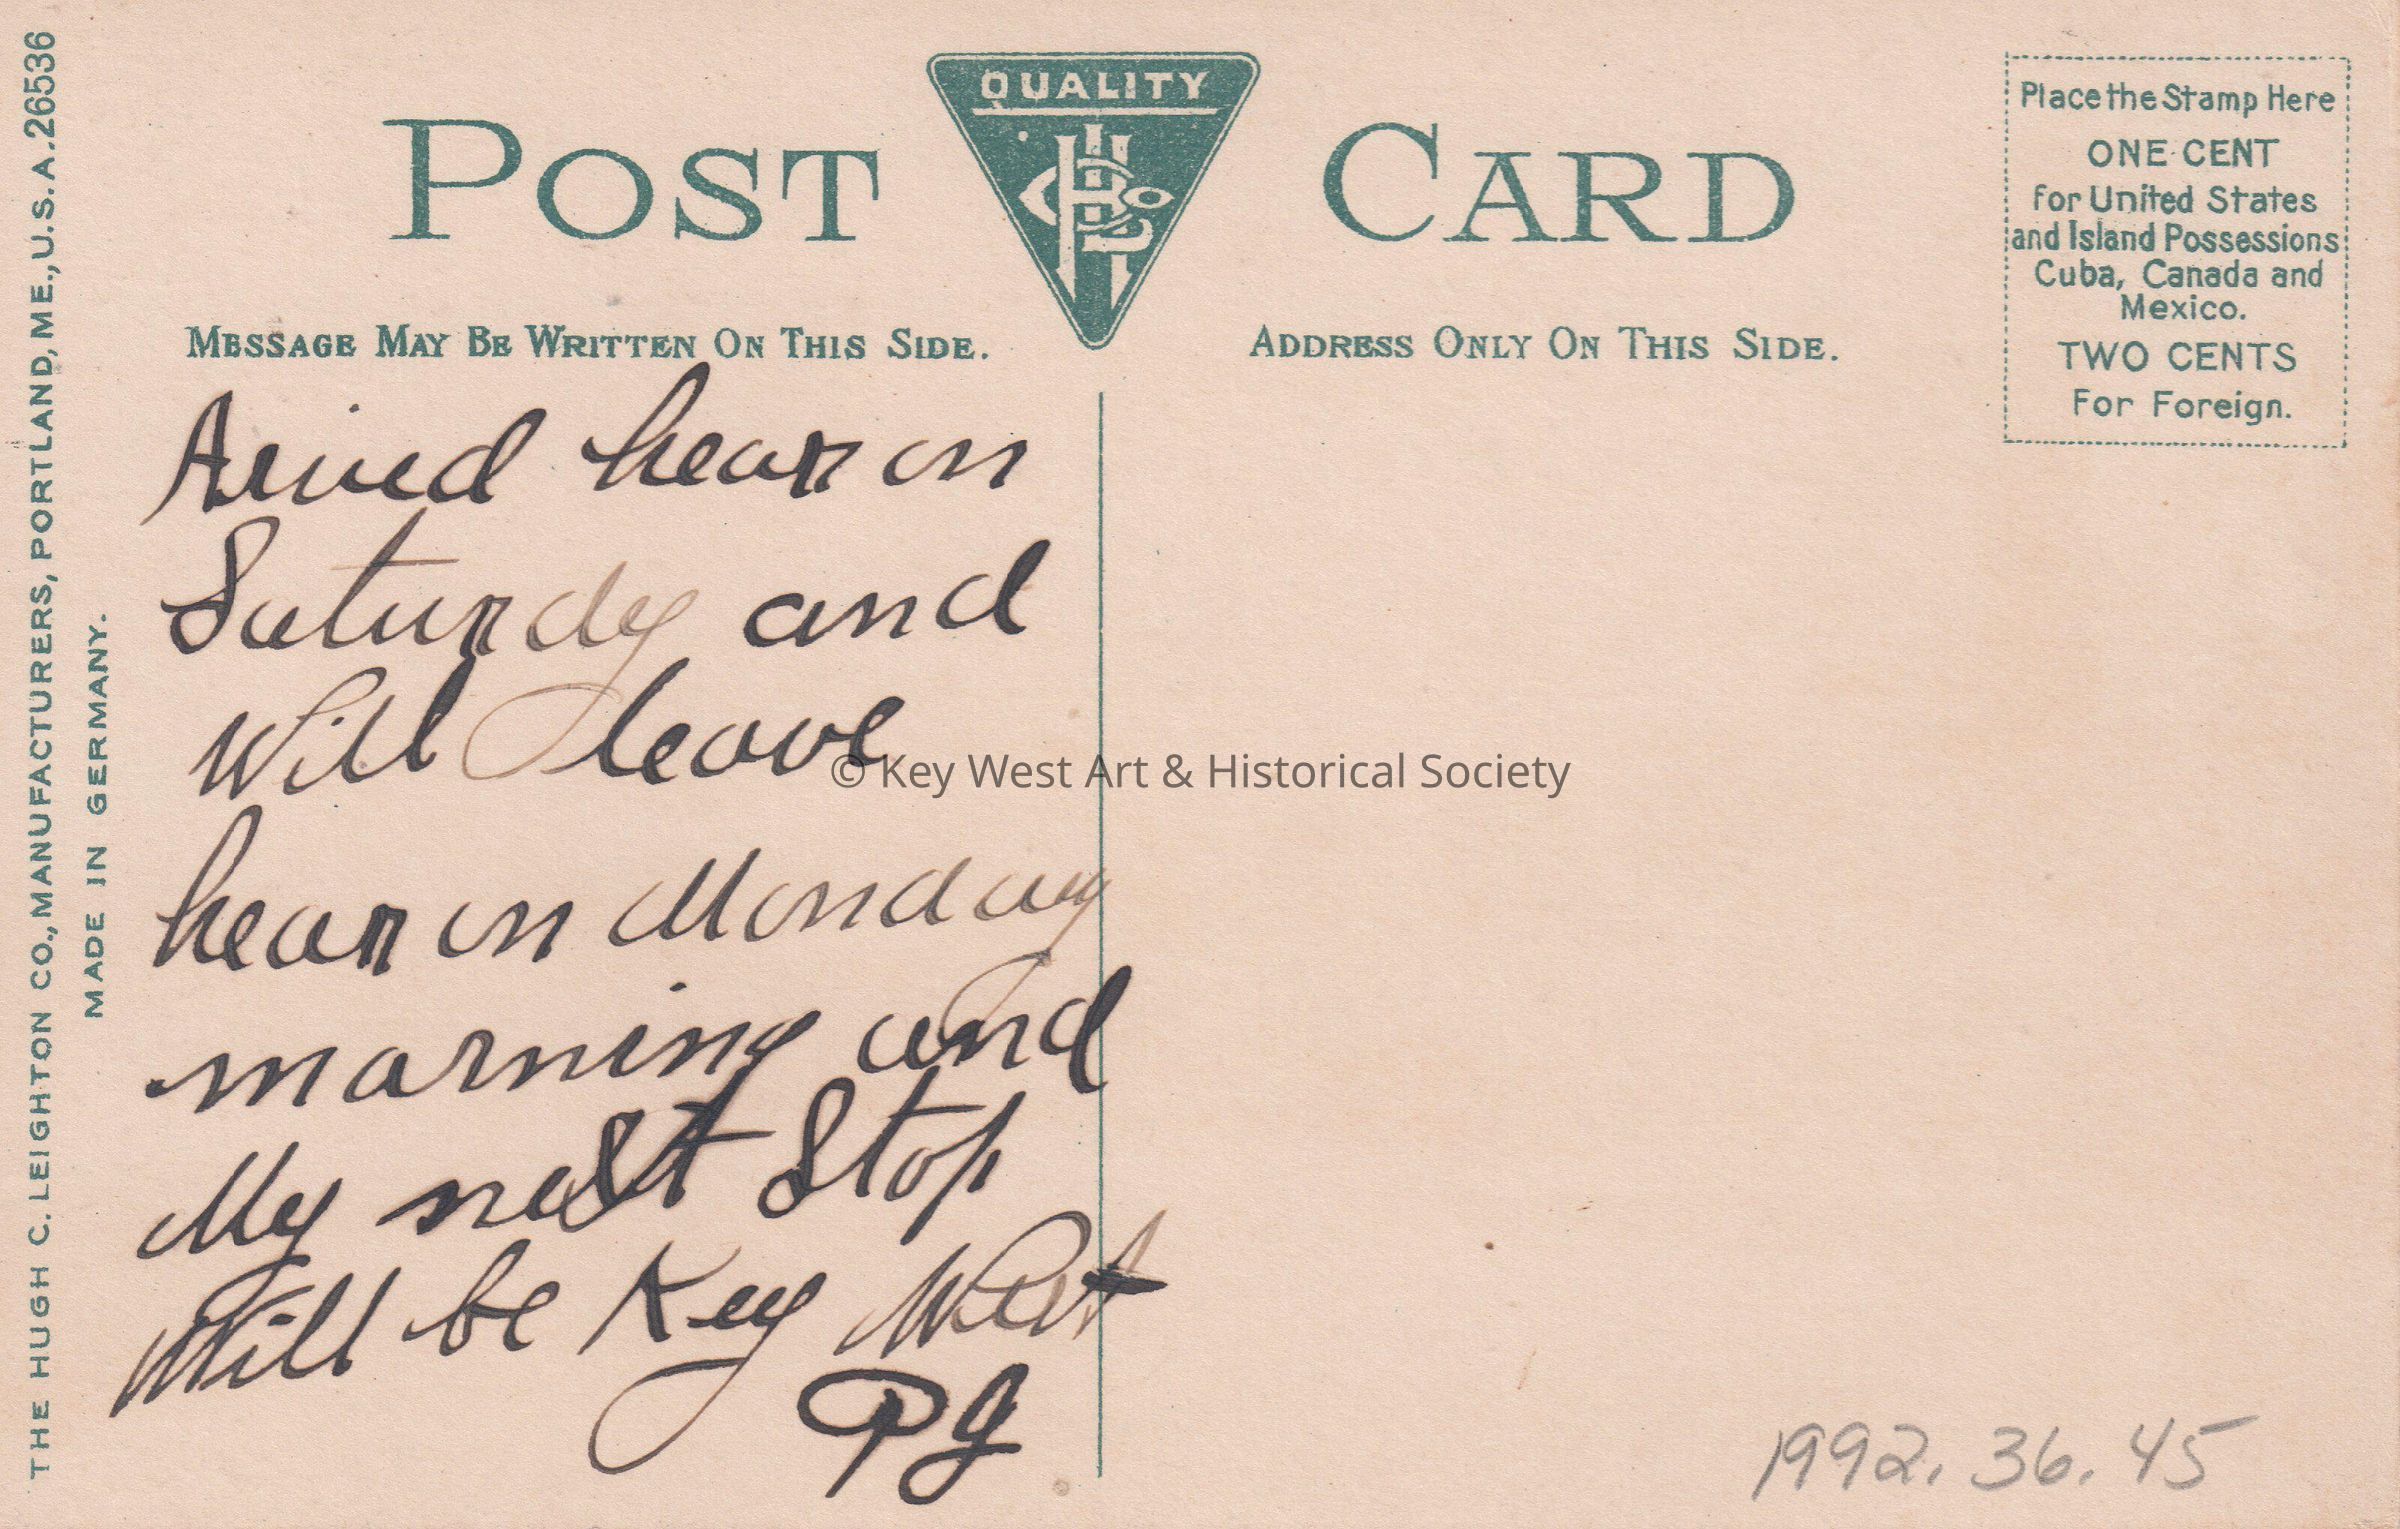 THE HUGH C. LEIGHTON CO., MANUFACTURERS, PORTLAND, ME., U.S.A. 26536
MADE IN GERMANY.
POST CARD
QUALITY
Place the Stamp Here
ONE CENT
for United States
and Island Possessions
Cuba, Canada and
Mexico.
TWO CENTS
For Foreign.
MESSAGE MAY BE WRITTEN ON THIS SIDE.
ADDRESS ONLY ON THIS SIDE.
Arived hear on
Saturdy and
Will leave
hear on Monday
morning and
My next Stop
Will be Key West
PG
© Key West Art & Historical Society
1992.36.45